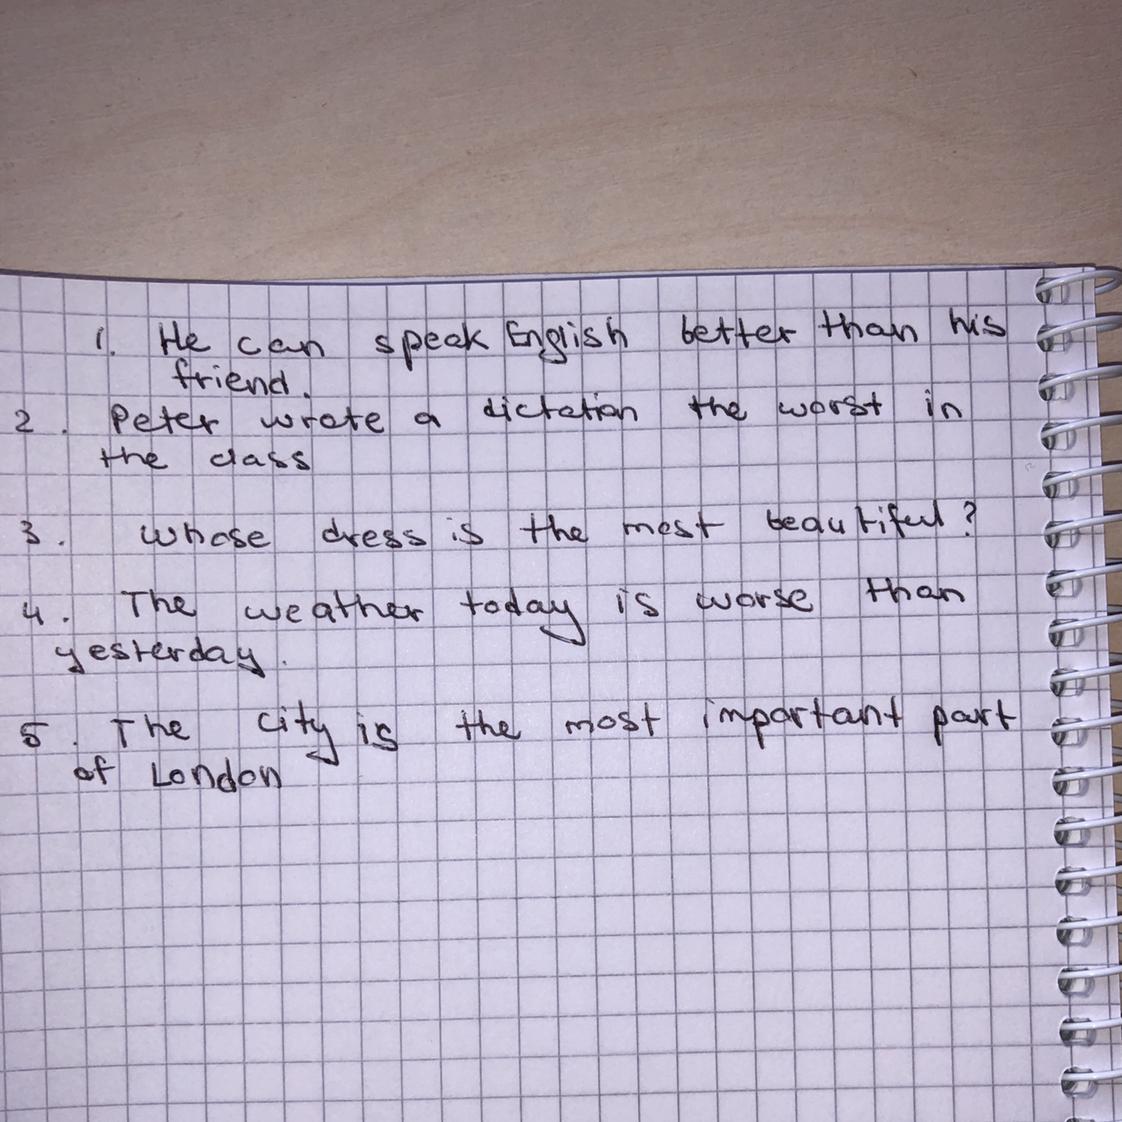 1. He can speak English better than his
friend.
2. Peter wrote a dictation the worst in
the class
3. Whose dress is the most beautiful?
4. The weather today is worse than
yesterday.
5. The city is the most important part
of London